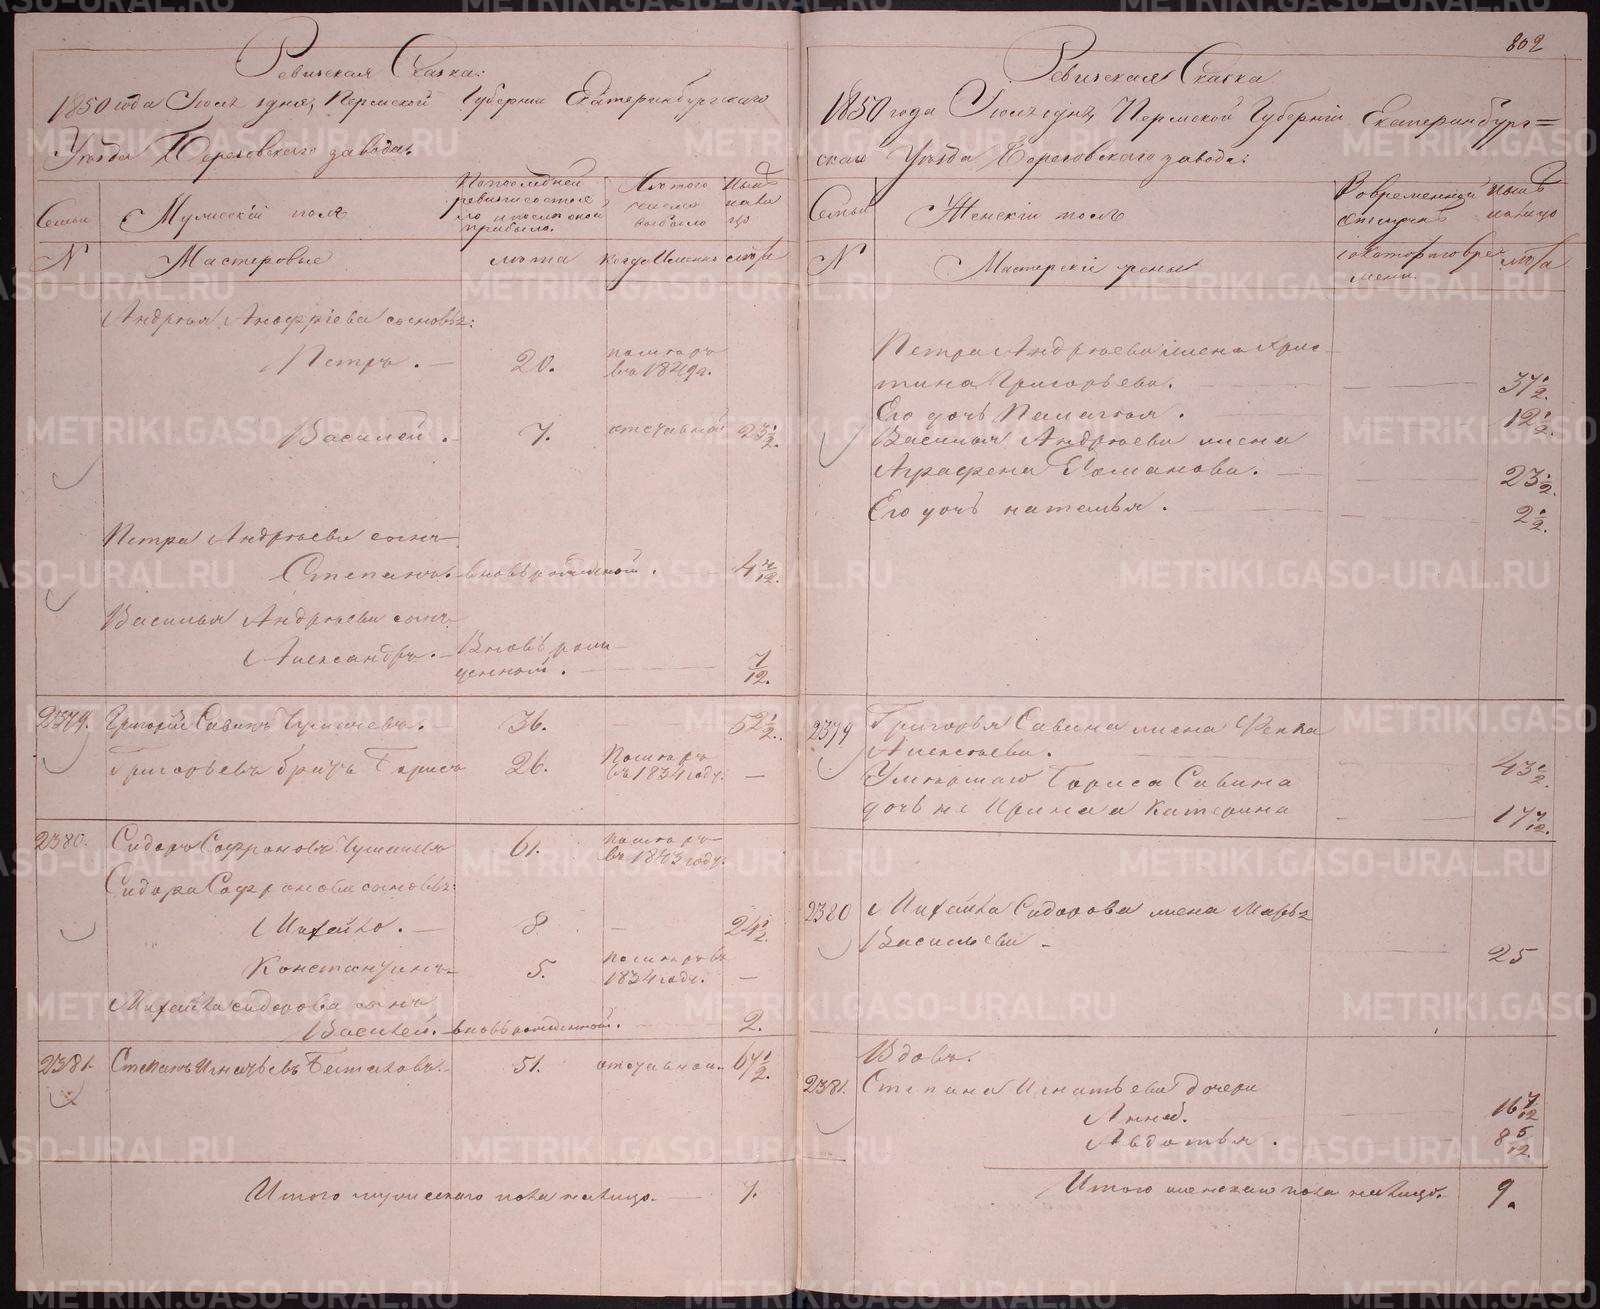 802
Ревизская Сказка:
1850 года Июля 1 дня, Пермской Губернии Екатеринбургскаго
Уезда Березовскаго завода.
Семьи
Мужескiй полъ
По последней ревизiи состояло и после оной прибыло.
Изъ того числа выбыло
Ныне на лицо
N
Мастеровые
лета
Когда Именно
лета
Андрея сыновья:
Петръ. 20. помторъ въ 1849 г.
Василей. 7. отставной 23 1/2.
Петра Андреева сынъ
Степанъ. вновь рожденной. 4 7/12.
Василья Андреева сынъ
Александръ. Вновь рож-
денной. 7/12.
2379. Григорiй Савинъ 36. 52 1/2.
Григорьевъ братъ Борисъ 26. въ 1834 году. —
2380. Сидоръ Софроновъ 61. въ 1843 году.
Сидора Софронова сыновья:
Михайло. 8. — 24 1/2.
Константинъ 5. въ 1834 году. —
Михайла Сидорова сынъ
Василей. вновь рожденной. 2.
2381. Степанъ Игнатьевъ 51. отставной. 67 1/2.
Итого мужескаго пола на лицо. 7.
Ревизская Сказка
1850 года Июля 1 дня, Пермской Губернiи Екатеринбург=
скаго Уезда Березовскаго завода:
Семьи
Женскiй полъ
Во временной отлучке
Ныне на лицо
N
Мастерскiе жены
съ котораго времени.
лета
Петра Андреева жена Хрис-
тина Григорьева. 37 1/2.
Его дочь Пелагея. 12 1/2.
Василья Андреева жена
Аграфена Романова. 23 1/2.
Его дочь Наталья. 2 1/2.
2379 Григорья Савина жена Фекла
Алексеева. 43 1/2.
Умершаго Бориса Савина
дочь Катерина 17 7/12.
2380 Михайла Сидорова жена Марья
Васильева - 25
Вдовъ.
2381. Степана Игнатьева дочери
Анна. 16 7/12
Авдотья. 8 5/12.
Итого женскаго пола на лицо. 9.
METRIKI.GASO-URAL.RU